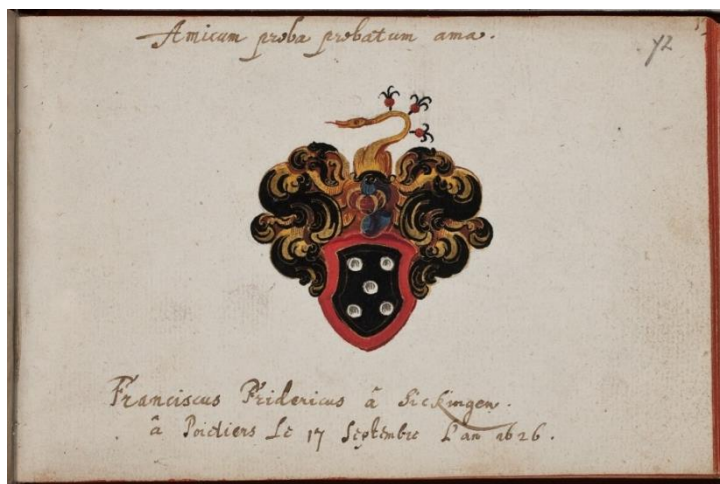 Amicum proba probatum ama.
72
Franciscus Fridericus â Sickingen.
â Poictiers Le 17 Septembre L'an 1626.